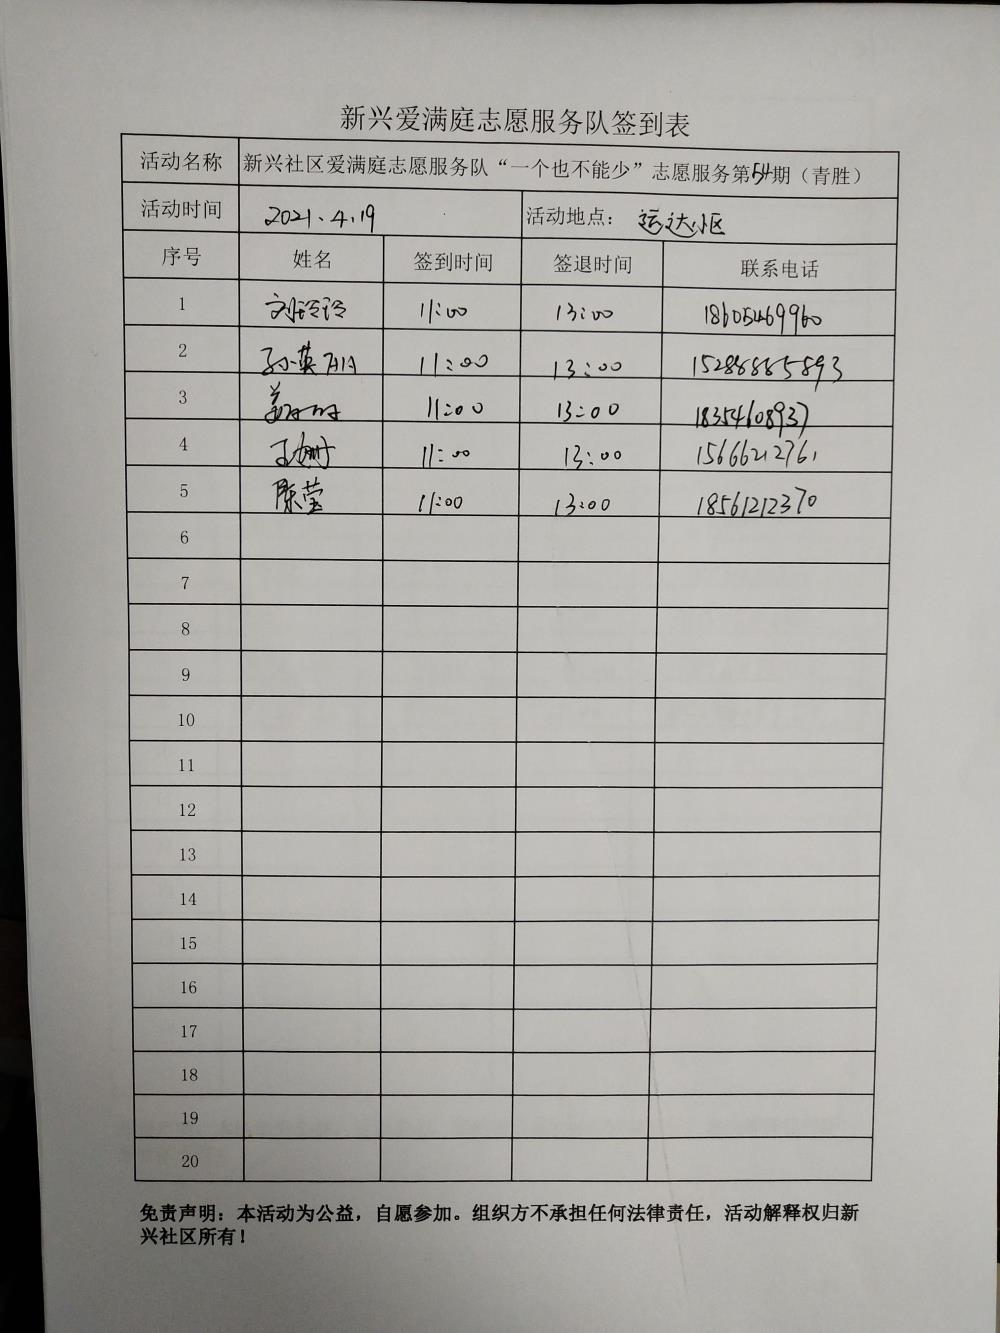 新兴爱满庭志愿服务队签到表
活动名称 新兴社区爱满庭志愿服务队“一个也不能少”志愿服务第54期（青胜）
活动时间 2021.4.19 活动地点： 运达小区
序号 姓名 签到时间 签退时间 联系电话
1 刘玲玲 11:00 13:00 18605469960
2 孙英 11:00 13:00 15288885893
3 11:00 13:00 18354608937
4 王姗 11:00 13:00 15666212761
5 陈莹 11:00 13:00 18561212370
6
7
8
9
10
11
12
13
14
15
16
17
18
19
20
免责声明：本活动为公益，自愿参加。组织方不承担任何法律责任，活动解释权归新
兴社区所有！